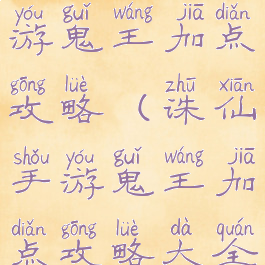 yóu guǐ wáng jiā diǎn
游鬼王加点
gōng lüè zhū xiān
攻略（诛仙
shǒu yóu guǐ wáng jiā
手游鬼王加
diǎn gōng lüè dà quán
点攻略大全